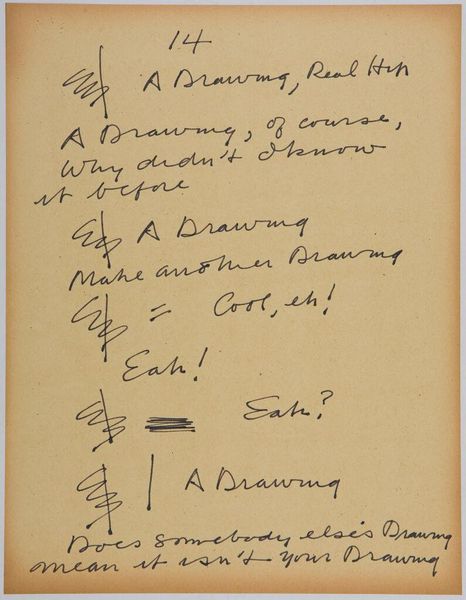 14
A Drawing, Real Hip
A Drawing, of course,
Why didn't I know
it before
A Drawing
Make another Drawing
= Cool, eh!
Eah!
Eah?
A Drawing
Does somebody else's Drawing
mean it isn't your Drawing